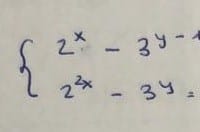 2ˣ - 3ʸ⁻
2²ˣ - 3ʸ =